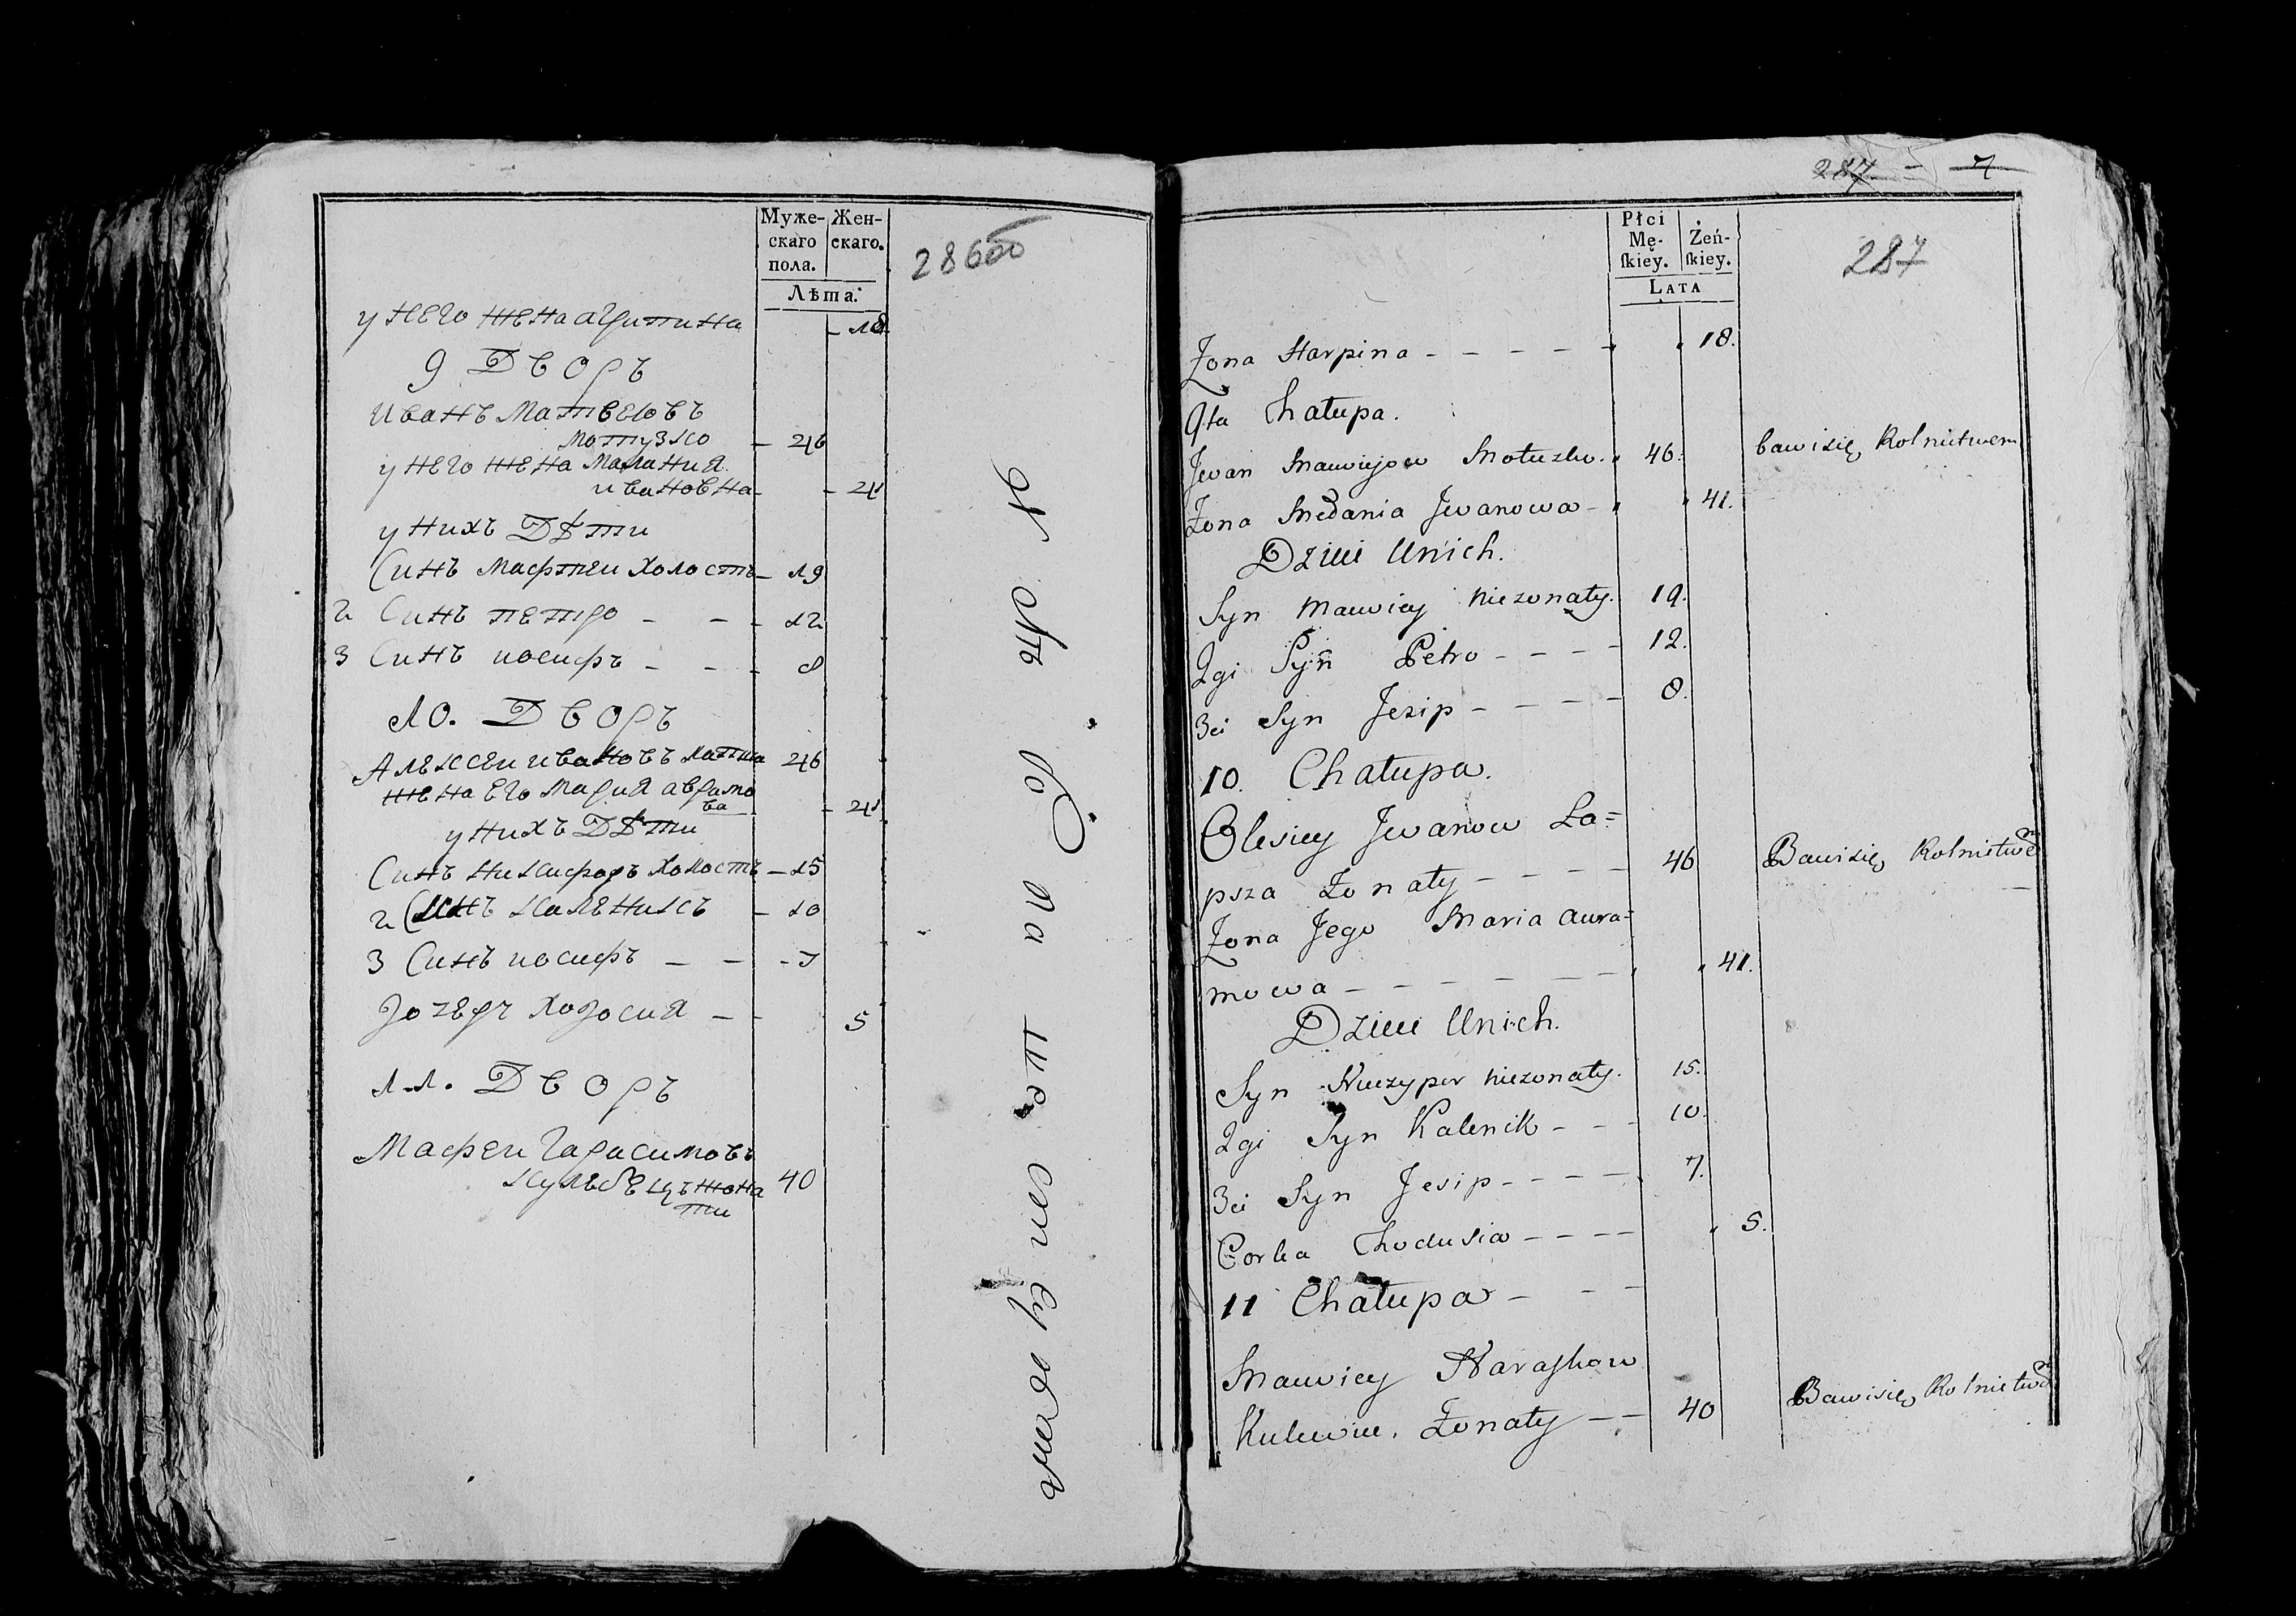 Муже-
скаго
пола.
Жен-
скаго.
Лѣта.
286об
у него жена агрипина - 18
9 Дворъ
Иванъ Матвеювъ
Мотузко - 46
у него жена Малания
ивановна - 41
у нихъ Дѣти
Синъ Мафтеи холостъ - 19
2 Синъ петро - - - 12
3 Синъ иосифъ - - - 8
10. Дворъ
Алексеи ивановъ лапша 46
жена его Мария аврамо
ва - 41
у нихъ Дѣти
Синъ никифоръ холостъ - 15
2 Синъ каленикъ - 10
3 Синъ иосифъ - - - 7
дочеръ ходосия - - 5
11. Дворъ
Мафеи Гарасимовъ
кулебецъ жона 40
ти
287 - 7
Płci
Mę-
ſkiey.
Żeń-
ſkiey.
LATA
287
Żona Harpina - - - - - 18.
9ta Chatupa.
Jwan Mawiejow Motuzko. 46. bawi się Rolnictwem
Żona Medania Jwanowa - 41.
Dzieci Unich.
Syn Mawiey nieżonaty. 19.
2gi Syn Petro - - - - 12.
3ci Syn Jezip - - - - 8.
10. Chatupa.
Olesiey Jwanow Ła=
psza Żonaty - - - - 46 Bawi się Rolnictwem
Żona Jego Maria Awra=
mowa - - - - - - 41.
Dzieci Unich.
Syn Niczypor nieżonaty. 15.
2gi Syn Kalenik - - - 10.
3ci Syn Jesip - - - - 7.
Corka Chodusia - - - - 5.
11 Chatupa - - -
Mawiey
Żonaty - - 40 Bawi się Rolnictwem